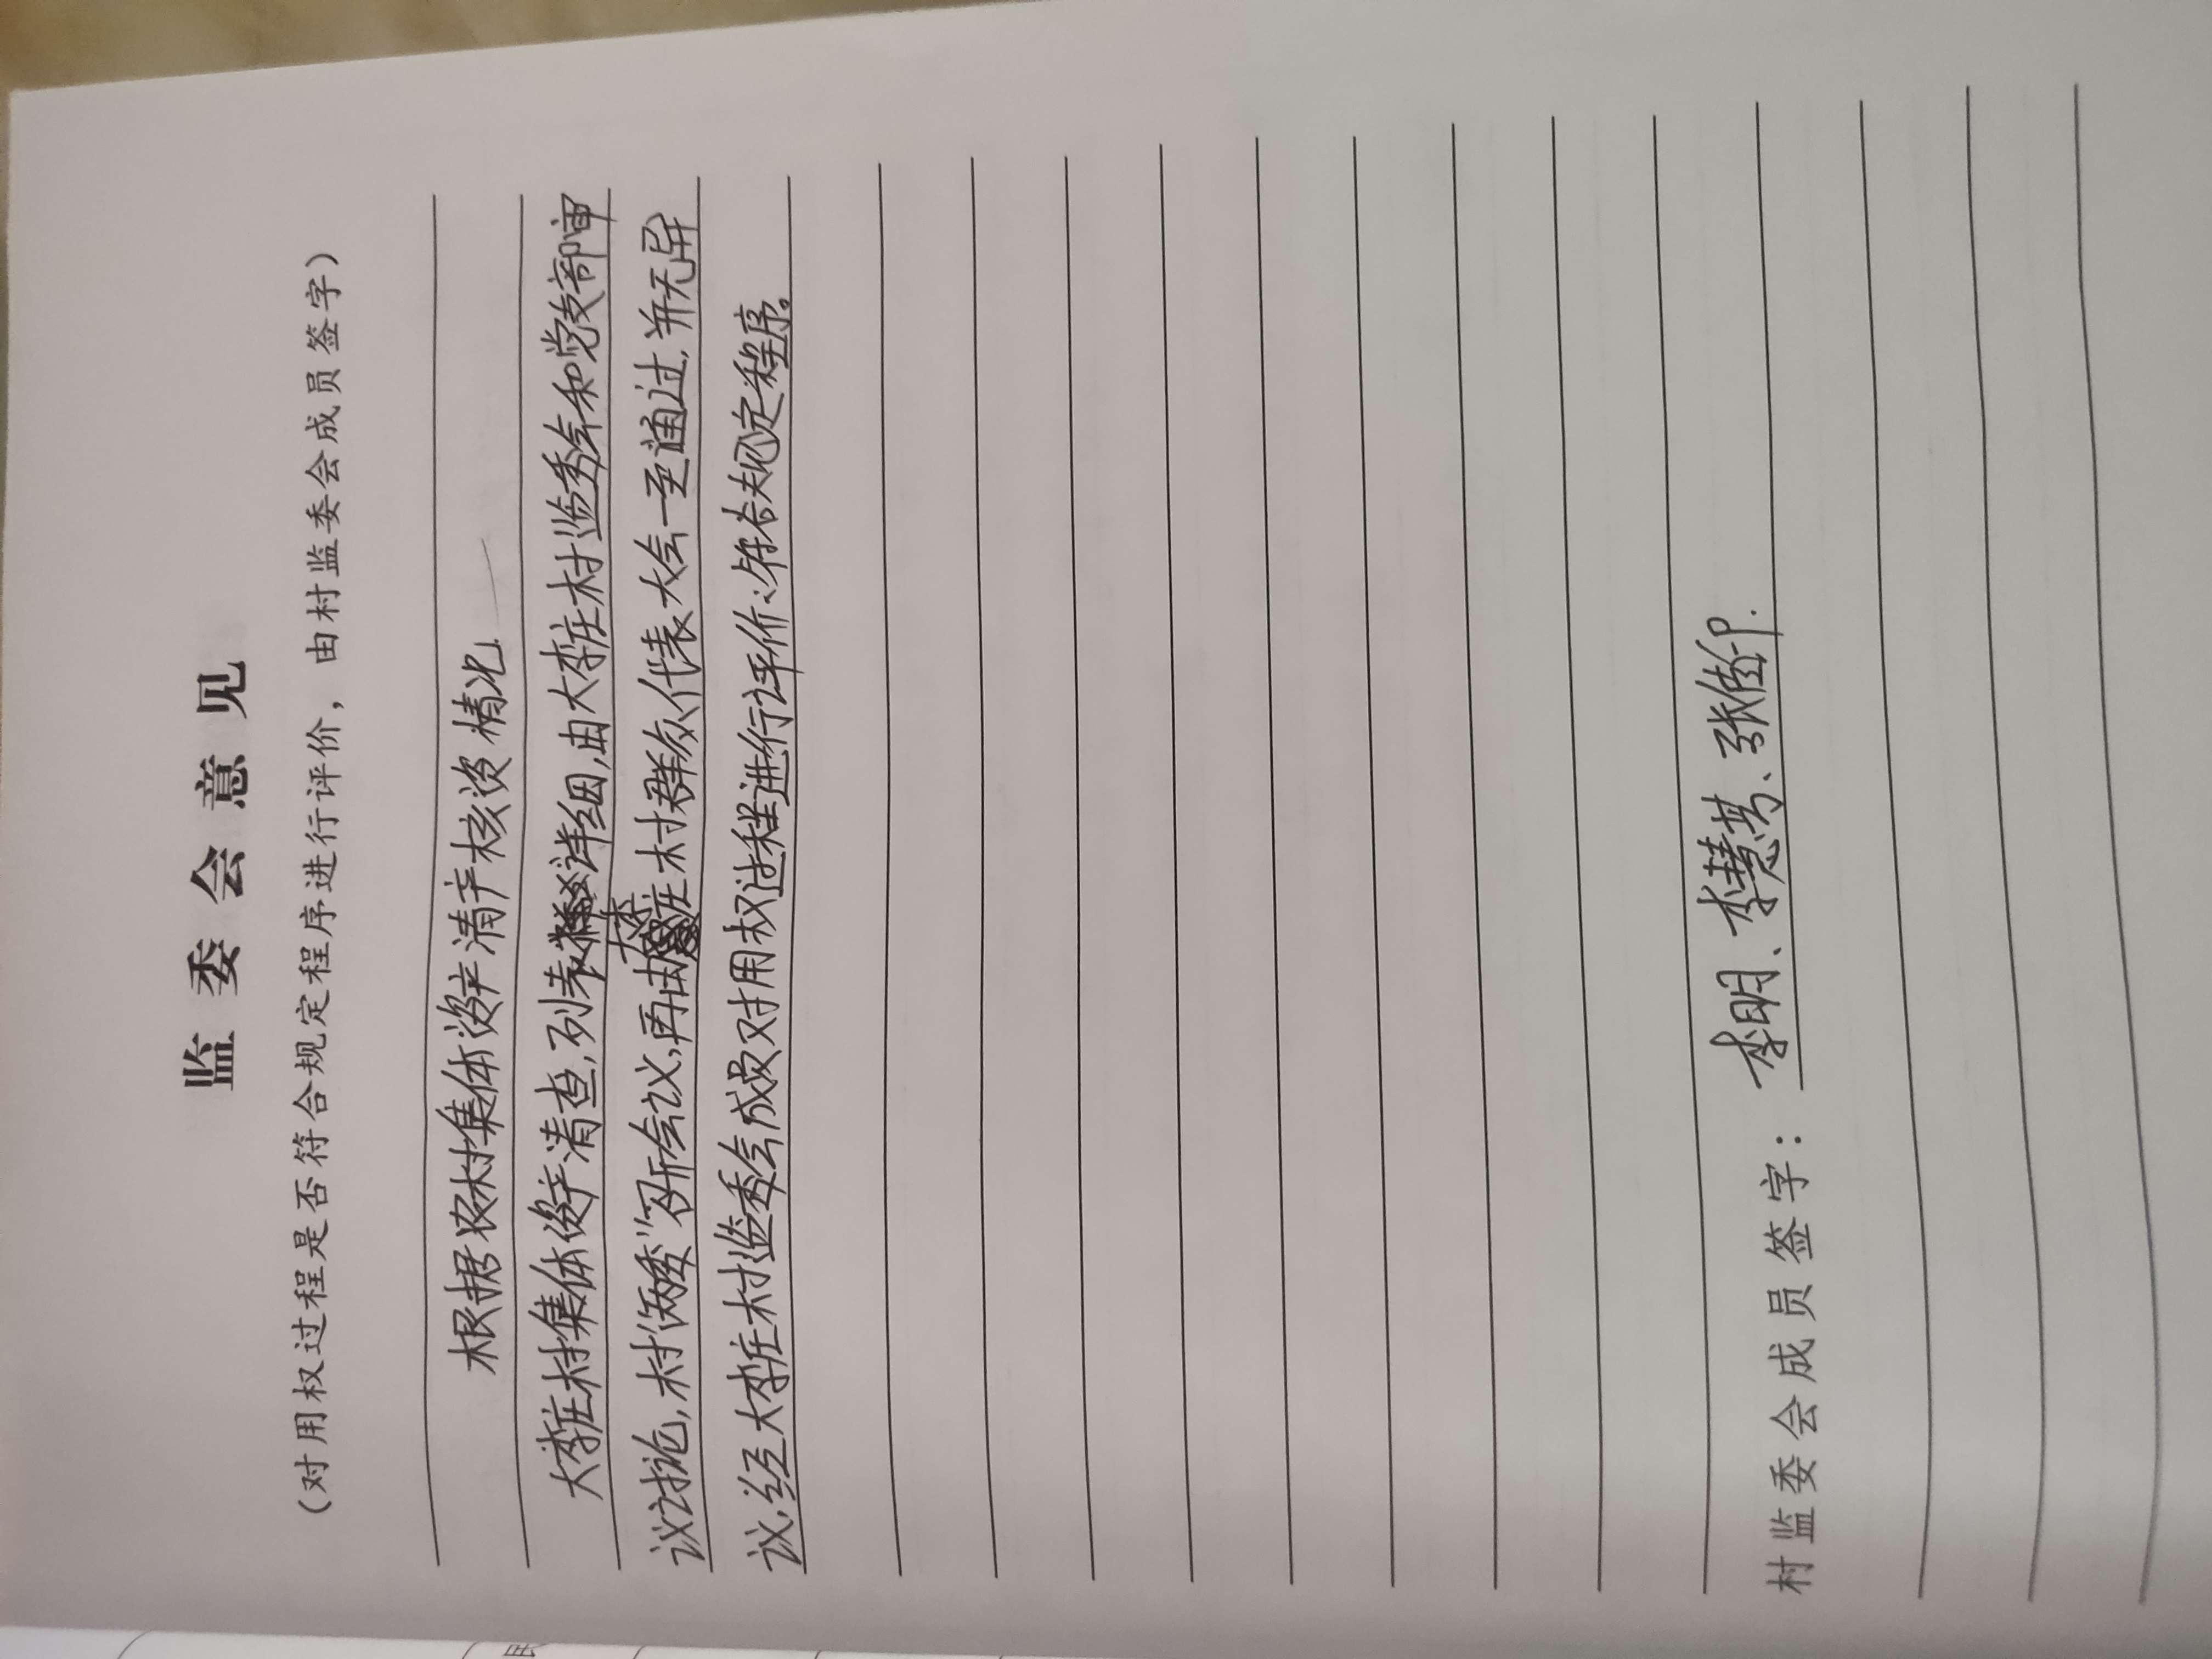 监委会意见
（对用权过程是否符合规定程序进行评价，由村监委会成员签字）
根据农村集体资产清产核资情况.
大李庄村集体资产清查,列表详细,由大李庄村监委会和党支部审
议讨论,村“两委”召开会议,再由大李庄村群众代表大会一至通过,并无异
议,经大李庄村监委会成员对用权过程进行评价:符合规定程序。
村监委会成员签字：李明、李慧芳、张佳印.